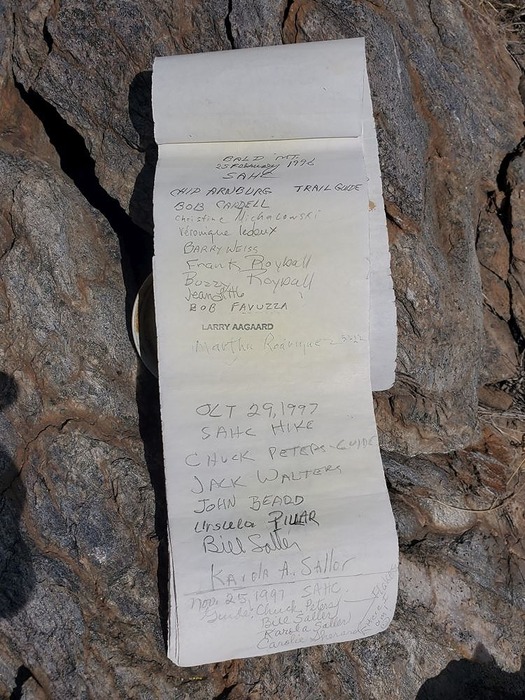 BALD MT.
25 February 1996
SAHC
CHIP ARNBURG TRAIL GUIDE
BOB CARDELL
Christine Michalowski
Véronique Ledoux
BARRY WEISS
Frank Roybal
Buzzy Roybal
BOB FAVUZZA
LARRY AAGAARD
Martha
OCT 29, 1997
SAHC HIKE
CHUCK PETERS-GUIDE
JACK WALTERS
JOHN BEARD
Ursula PILLAR
Bill Saller
Karola A. Saller
Nov. 25, 1997 SAHC
Guide: Chuck Peters
Bill Saller
Karola Saller